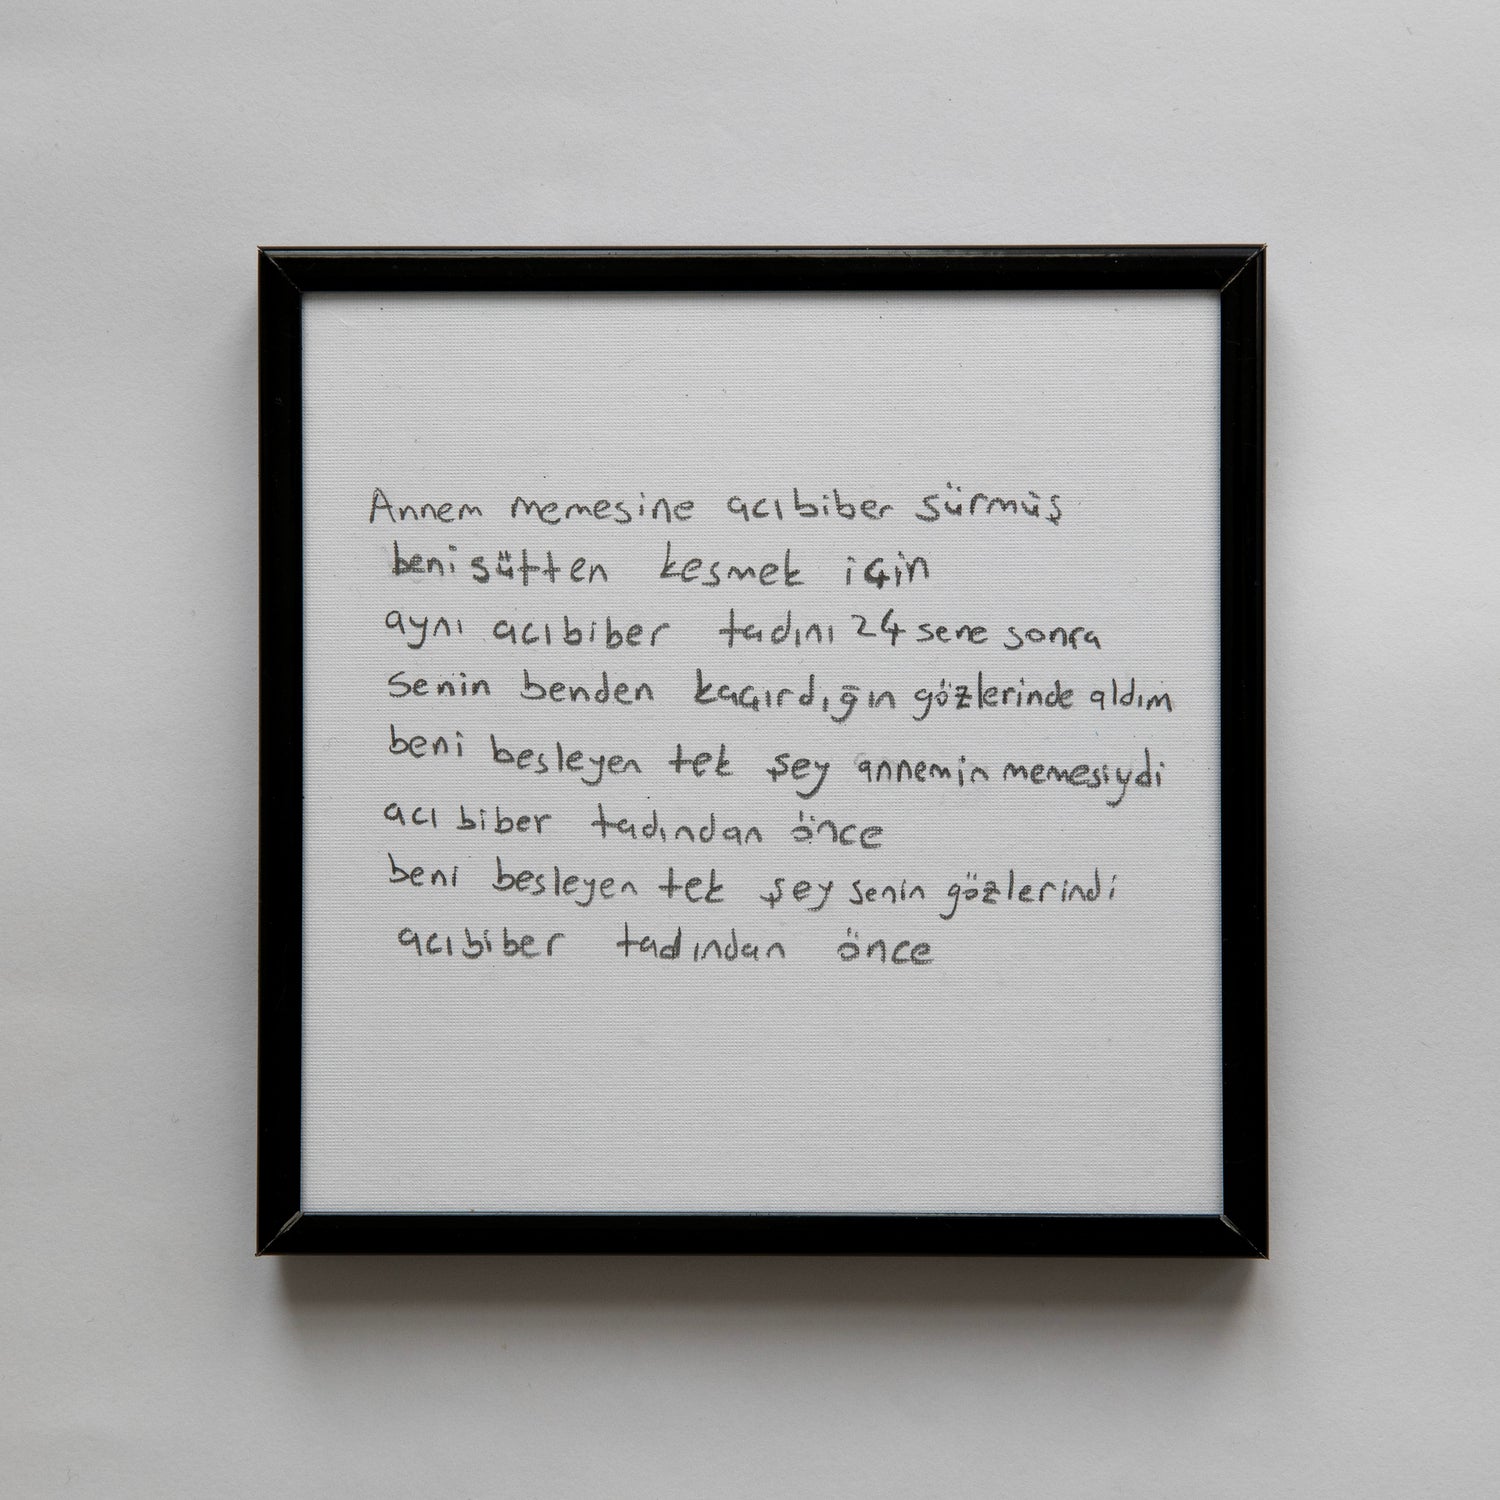 Annem memesine acıbiber sürmüş
beni sütten kesmek için
aynı acıbiber tadını 24 sene sonra
senin benden kaçırdığın gözlerinde aldım
beni besleyen tek şey annemin memesiydi
acı biber tadından önce
beni besleyen tek şey senin gözlerindi
acıbiber tadından önce